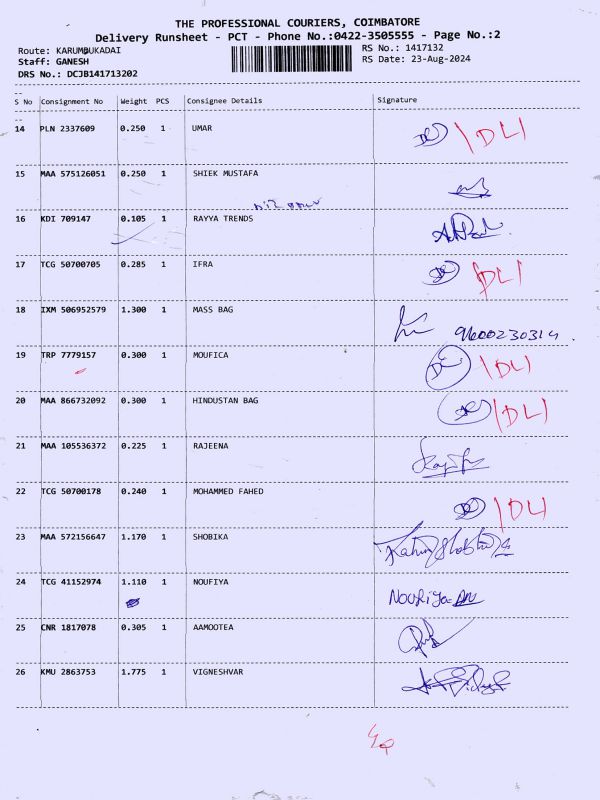 THE PROFESSIONAL COURIERS, COIMBATORE
Delivery Runsheet - PCT - Phone No.:0422-3505555 - Page No.:2
Route: KARUMBUKADAI RS No.: 1417132
Staff: GANESH RS Date: 23-Aug-2024
DRS No.: DCJB141713202
S No Consignment No Weight PCS Consignee Details Signature
14 PLN 2337609 0.250 1 UMAR DLI
15 MAA 575126051 0.250 1 SHIEK MUSTAFA
16 KDI 709147 0.105 1 RAYYA TRENDS
17 TCG 50700705 0.285 1 IFRA DLI
18 IXM 506952579 1.300 1 MASS BAG
9600230314
19 TRP 7779157 0.300 1 MOUFICA DLI
20 MAA 866732092 0.300 1 HINDUSTAN BAG DLI
21 MAA 105536372 0.225 1 RAJEENA
22 TCG 50700178 0.240 1 MOHAMMED FAHED DLI
23 MAA 572156647 1.170 1 SHOBIKA
24 TCG 41152974 1.110 1 NOUFIYA
25 CNR 1817078 0.305 1 AAMOOTEA
26 KMU 2863753 1.775 1 VIGNESHVAR